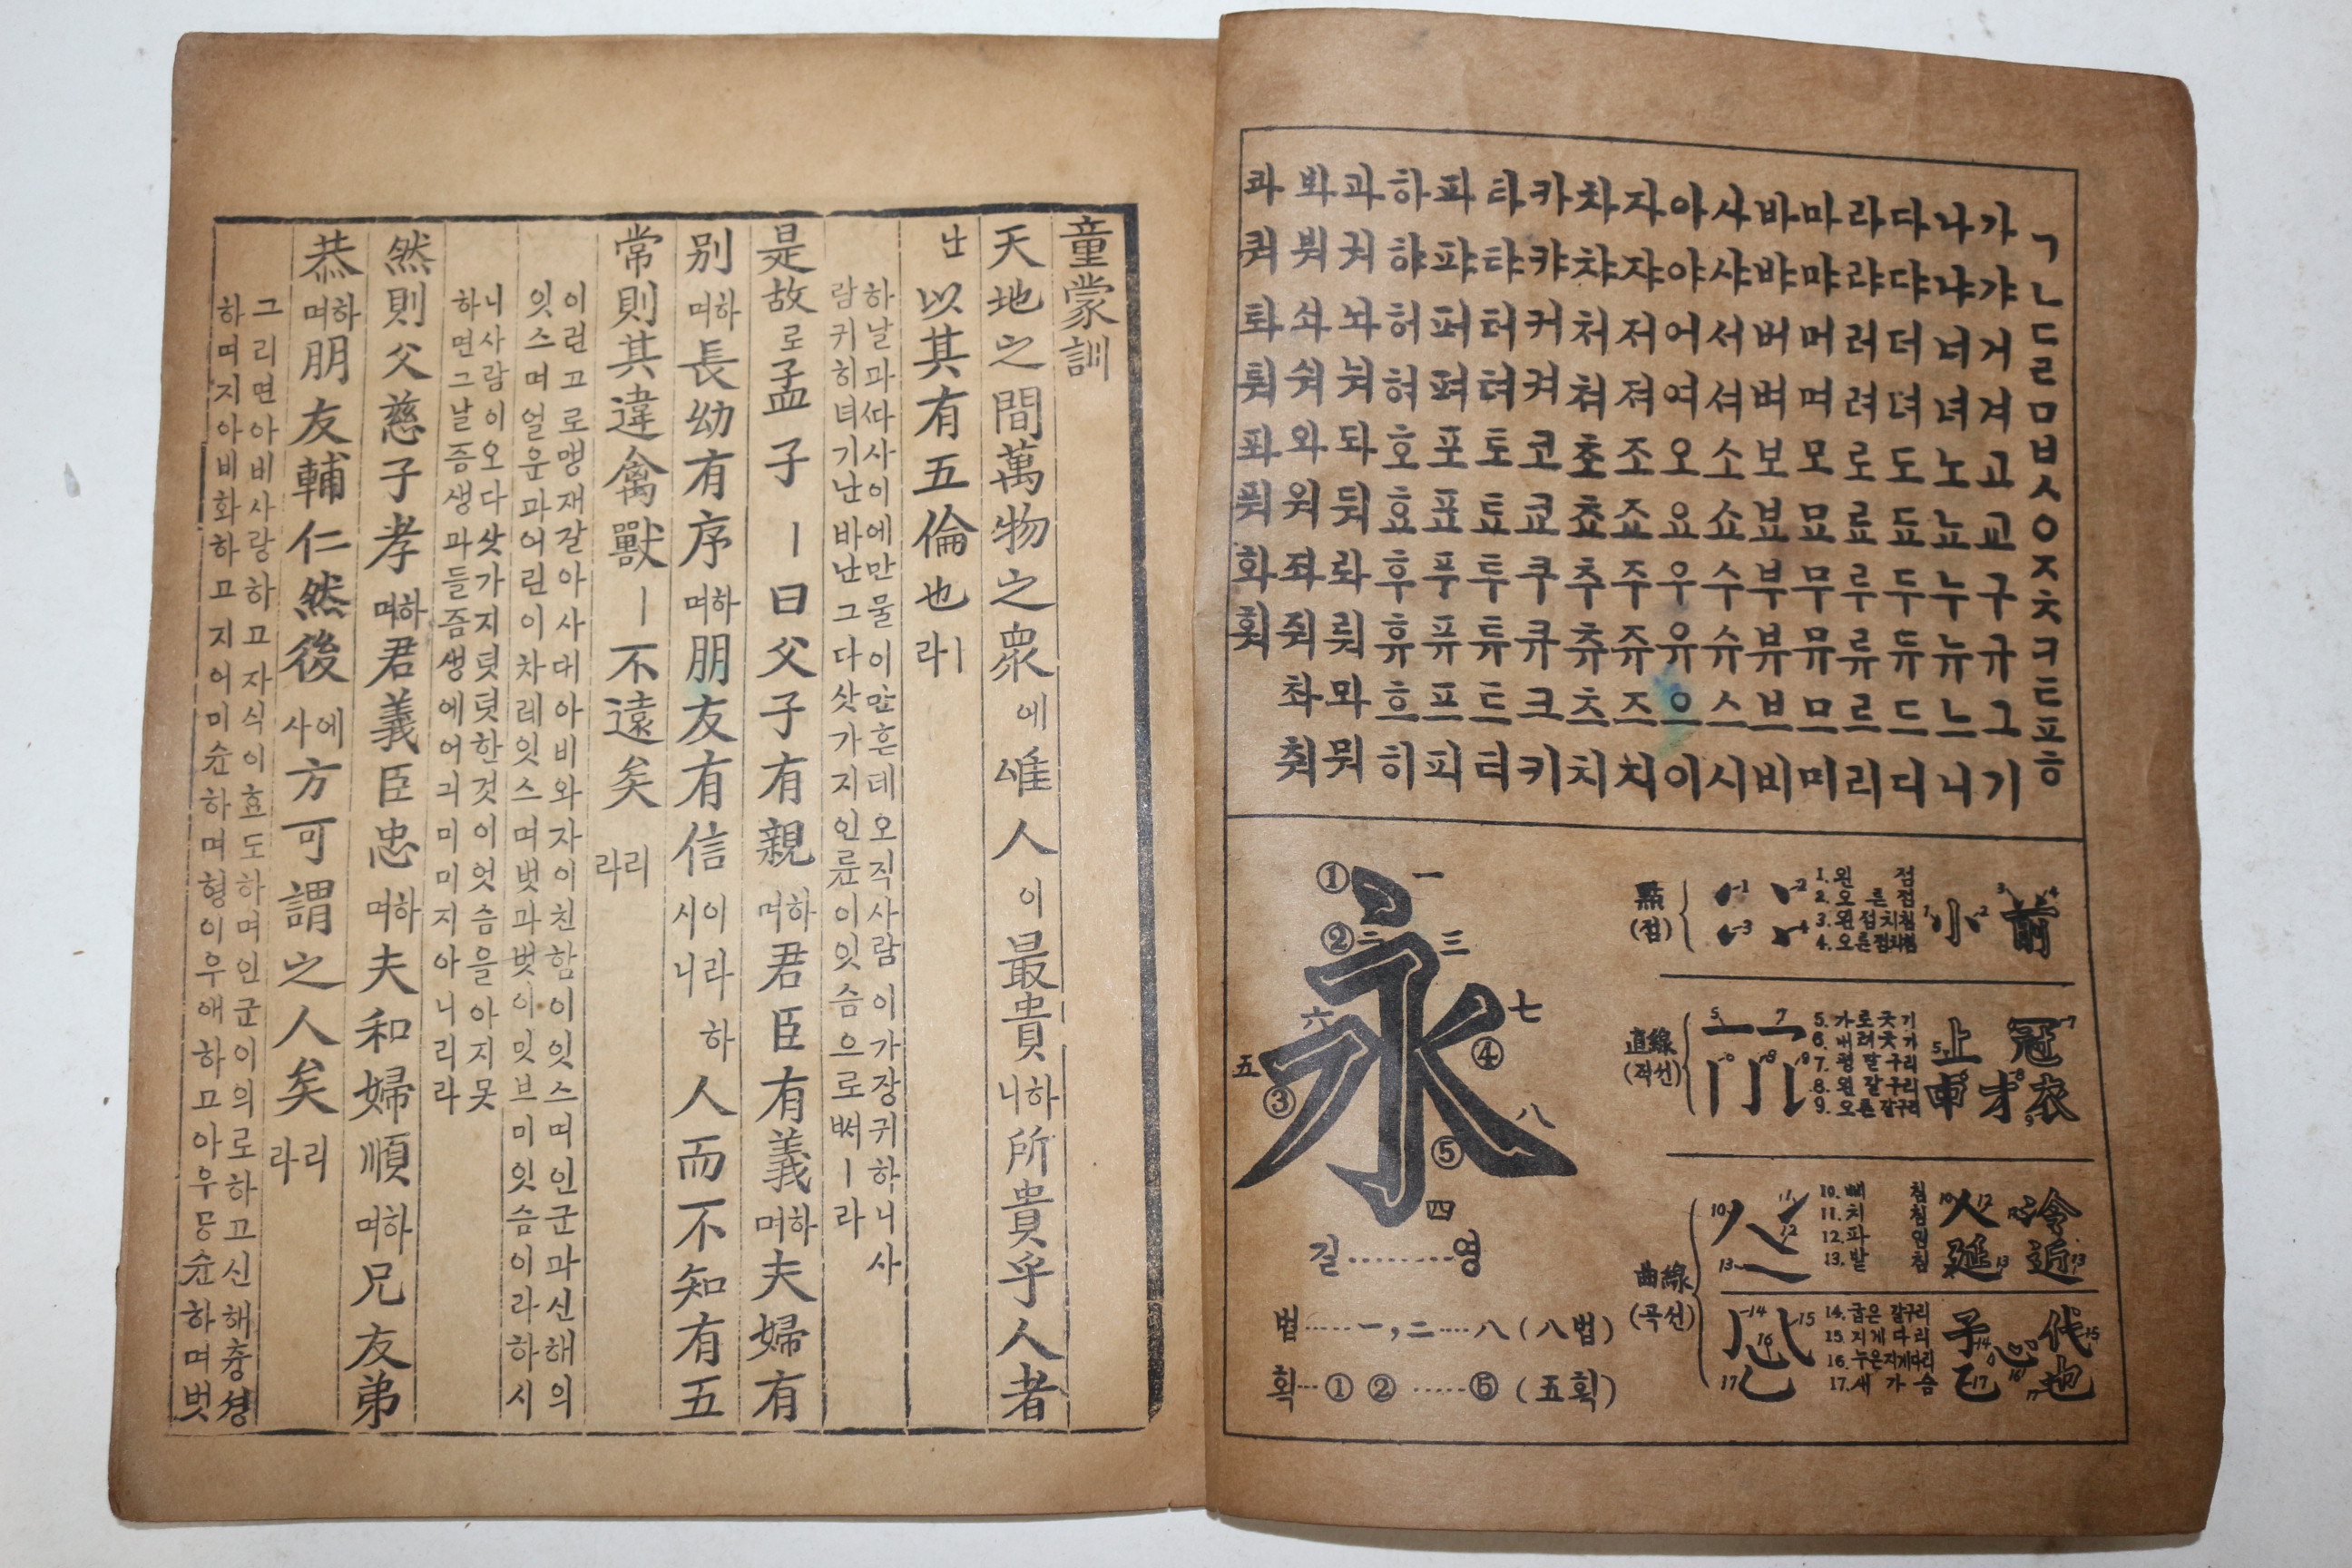 ㄱㄴㄷㄹㅁㅂㅅㅇㅈㅊㅋㅌㅍㅎ
가갸거겨고교구규그기
나냐너녀노뇨누뉴느니
다댜더뎌도됴두듀드디
라랴러려로료루류르리
마먀머며모묘무뮤므미
바뱌버벼보뵤부뷰브비
사샤서셔소쇼수슈스시
아야어여오요우유으이
자쟈저져조죠주쥬즈지
차챠처쳐초쵸추츄츠치
카캬커켜코쿄쿠큐크키
타탸터텨토툐투튜트티
파퍄퍼펴포표푸퓨프피
하햐허혀호효후휴흐히
과궈놔눠돠둬롸뤄뫄뭐
봐붜솨숴와워좌줘촤춰
콰쿼톼퉈퐈풔화훠
① 一
② 二 三
永
六 七
五 ④
③ 八
⑤
四
길………영
법……一,二……八(八법)
획…① ② ……⑤(五획)
點
(점)
1 2
3 4
1. 왼 점
2. 오른점
3. 왼점치침
4. 오른점치침
小 前
直線
(직선)
5 7
6 8 9
5. 가로긋기
6. 내려긋기
7. 평갈구리
8. 왼갈구리
9. 오른갈구리
上 冠
申 才 衣
曲線
(곡선)
10 11
12
13
10. 삐침
11. 치침
12. 파임
13. 받침
人 冷
延 近
14 15
16
17
14. 굽은갈구리
15. 지게다리
16. 누은지게다리
17. 새가슴
子 心 代
己 也
童蒙訓
天地之間萬物之衆에唯人이最貴하니所貴乎人者
난以其有五倫也ㅣ라
하날과ᄯᅡ사이에만물이만흔데오직사람이가장귀하니사
람귀히녀기난바난그다삿가지인륜이잇슴으로ᄡᅥㅣ라
是故로孟子ㅣ曰父子有親하며君臣有義하며夫婦有
別하며長幼有序하며朋友有信이라하시니人而不知有五
常則其違禽獸ㅣ不遠矣리라
이런고로맹재갈아사대아비와자이친함이잇스며인군과신해의
잇스며얼운과어린이차레잇스며벗과벗이밋브미잇슴이라하시
니사람이오다삿가지덧덧한것이엇슴을아지못
하면그날즘생과들즘생에어긔미미지아니리라
然則父慈子孝하며君義臣忠하며夫和婦順하며兄友弟
恭하며朋友輔仁然後에사方可謂之人矣리라
그리면아비사랑하고자식이효도하며인군이의로하고신해충셩
하며지아비화하고지어미슌하며형이우애하고아우공슌하며벗